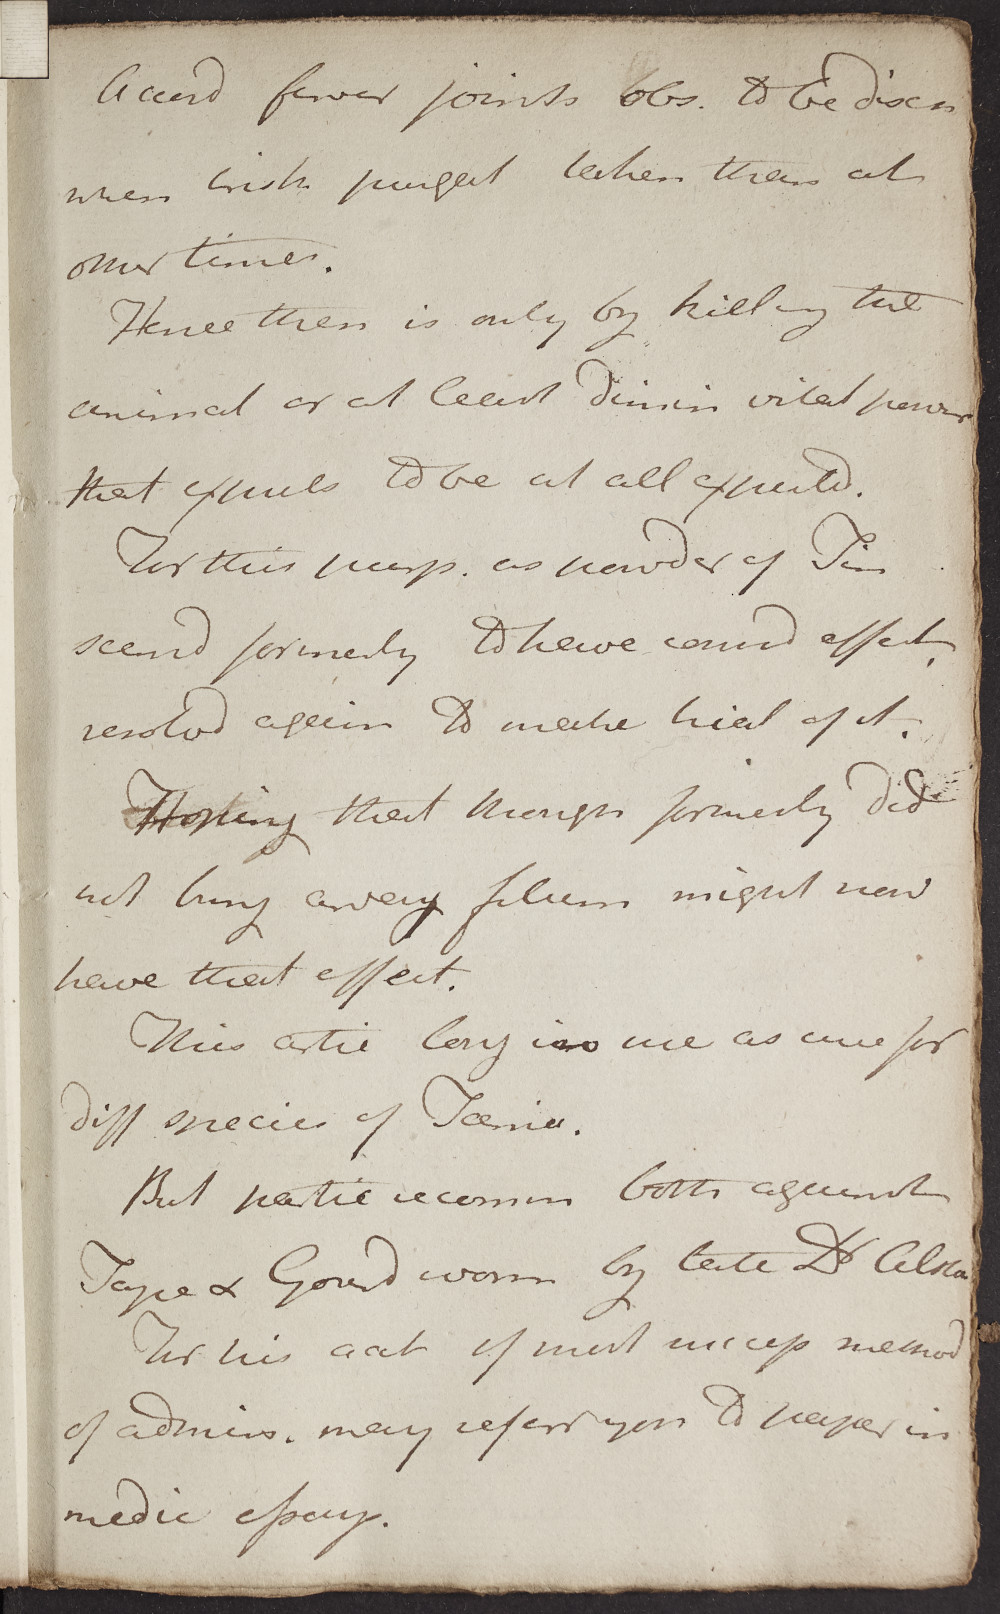 Accord fewer joints obs. to be disch
when brisk purgat taken than at
other times.
Hence then is only by killing the
animal or at least dimin vital power
that expuls to be at all expected.
For this purp. as powder of Tin
seemd formerly to have consid effect,
resolvd again to make trial of it.
Hoping that though formerly did
not bring away filum might now
have that effect.
This artic long in use as cure for
diff species of Taenia.
But partic recomm both against
Tape & Gourd worm by late Dr Alston
For his acct of most success method
of admins. may refer you to paper in
medic essays.